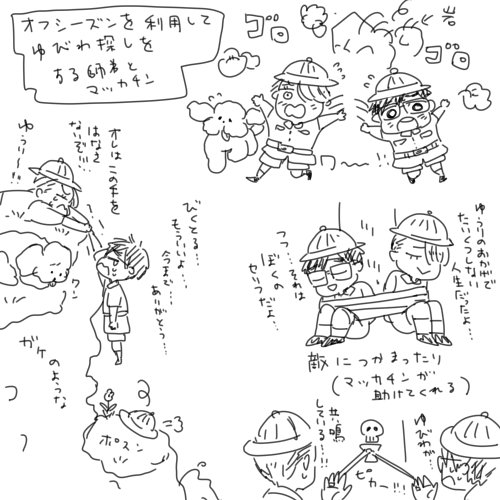 オフシーズンを利用して
ゆびわ探しを
する師弟と
マッカチン
ゴロ
ゴロ
岩
ワー―!!
ゆうりー―!!
オレはこの手を
はなさ
ないぞ!!!
びくとる…
もういいよ…
今まで…
ありがとう…
ワン
ガケ
のような
ポスン
=3
ゆうりのおかげで
たいくつしない
人生だったよ…
つっ…それは
ぼくの
セリフだよ…
敵につかまったり
(マッカチンが
助けてくれる)
ゆびわが
共鳴
している…!!
ピカー!!!